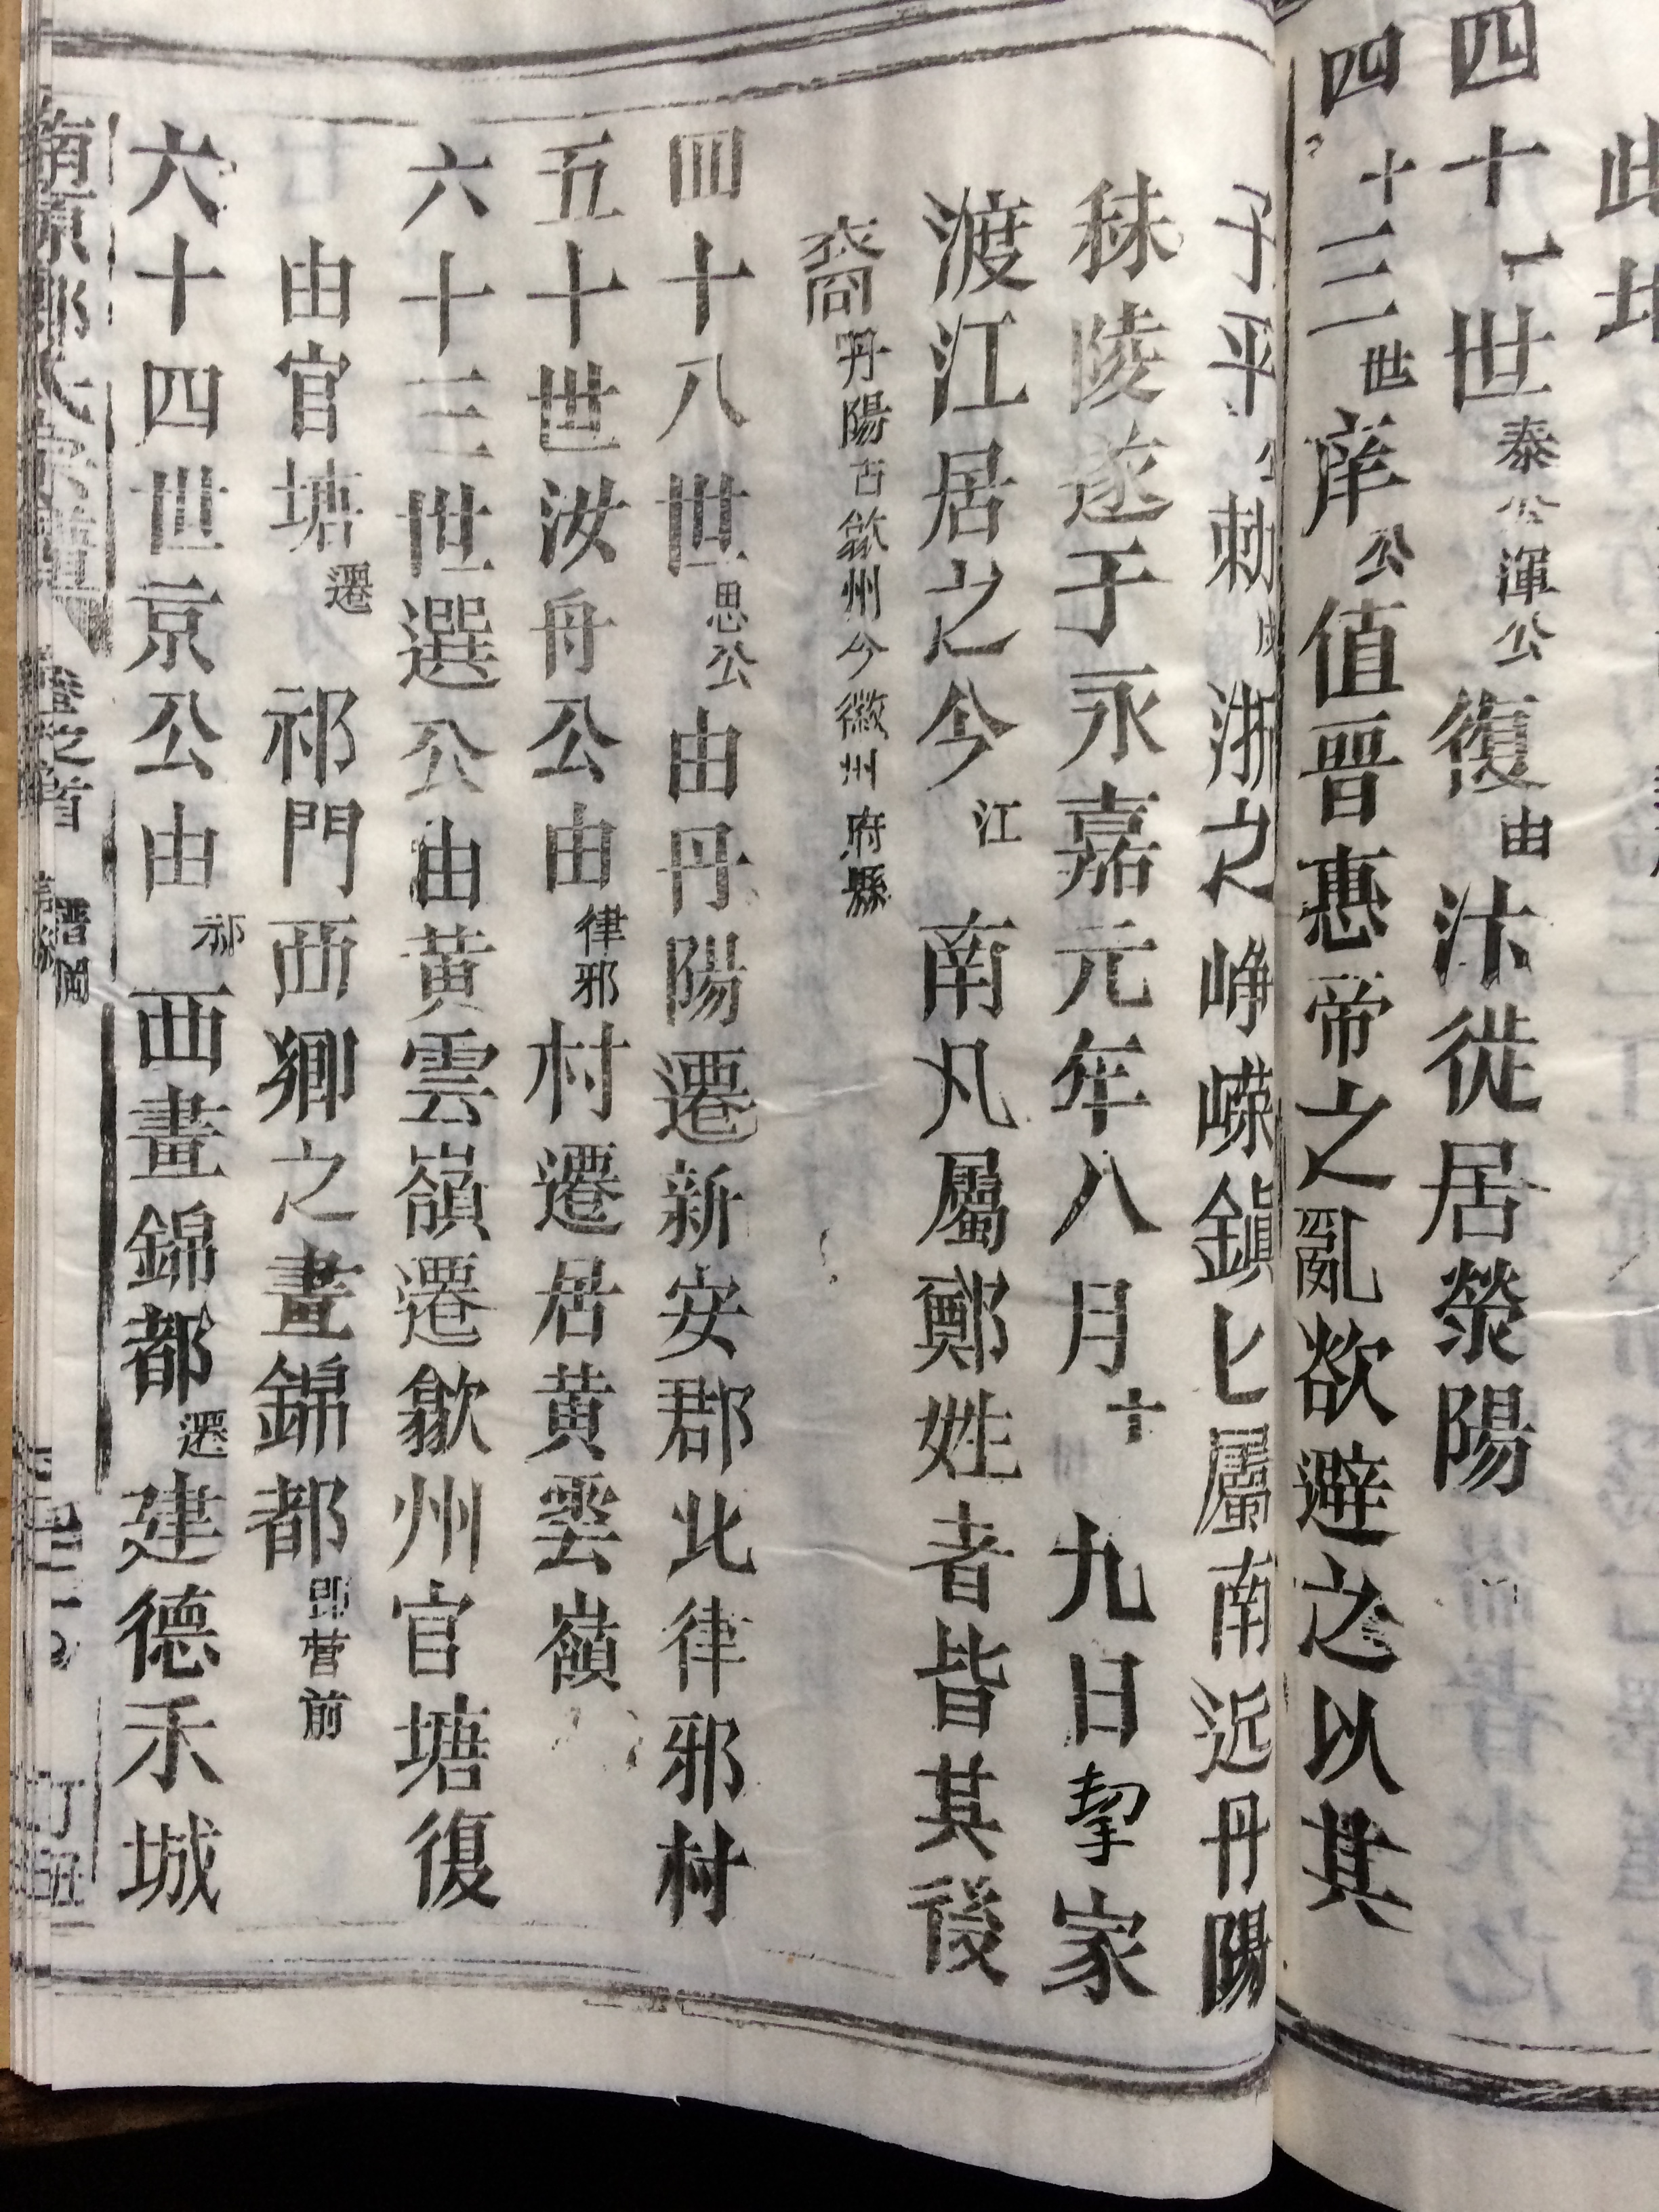 此
四十一世泰公渾公復由汴徙居滎陽
四十三世庠公值晉惠帝之亂欲避之以其
子平公勅成浙之崢嶸鎮匕屬南近丹陽
秣陵遂于永嘉元年八月十九日挈家
渡江居之今江南凡屬鄭姓者皆其後
裔丹陽古歙州今徽州府縣
四十八世思公由丹陽遷新安郡北律邪村
五十世汝舟公由律邪村遷居黄雲嶺
六十三世選公由黄雲嶺遷歙州官塘復
由官塘遷祁門西鄉之晝錦都即营前
六十四世京公由祁西晝錦都遷建德禾城